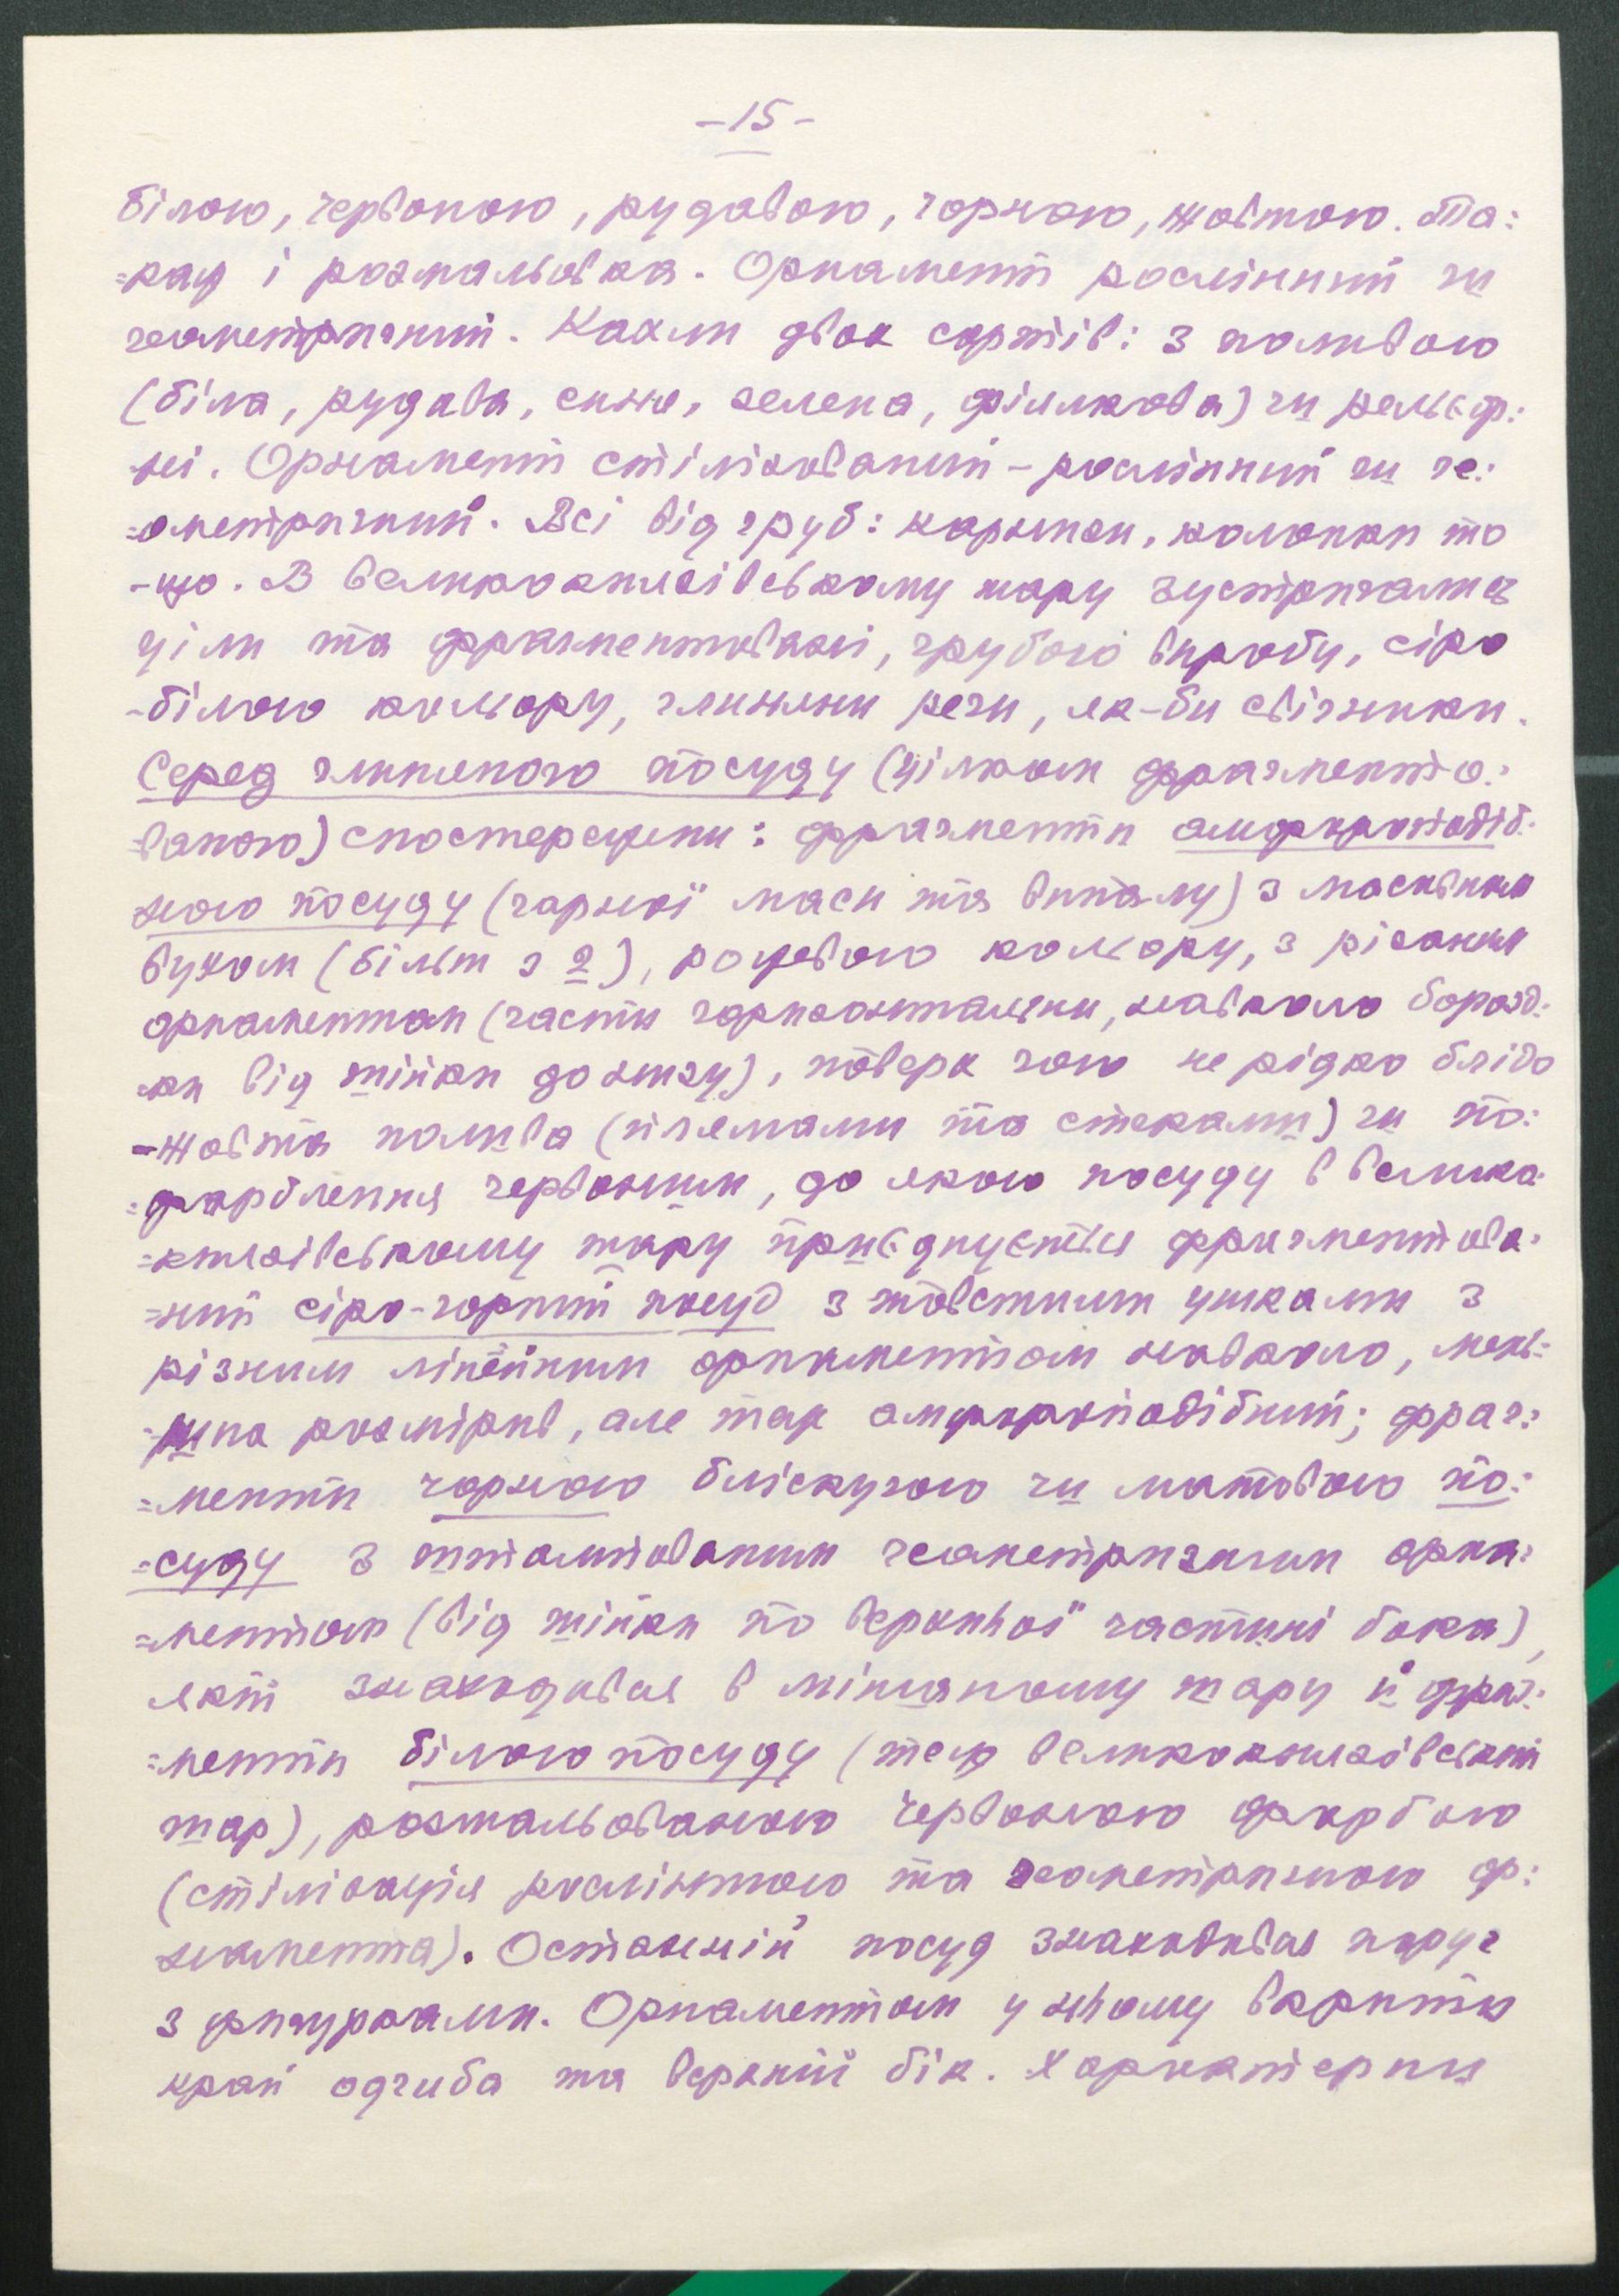 -15-
білою, червоною, рудавою, чорною, жовтою. Та:
=каж і розмальовка. Орнамент рослінний чи
геометричний. Кахли двох сортів: з поливою
(біла, рудава, синя, зелена, фіялкова) чи рельєф:
ні. Орнамент стілізований - рослінний чи ге:
=ометричний. Всі від груб: карнизи, колонки то
-що. В великокнязівському шару зустрічались
цілі та фрагментовані, грубого виробу, сіро
-білого кольору, глиняни речи, як-би свічники.
Серед глиняного посуду (цілком фрагменто:
=ваного) спостережени: фрагменти амфороподіб:
ного посуду (гарної маси та випалу) з масивним
вухом (більш з 2), рожевого кольору, з різаним
орнаментом (части горизонтальни, навколо борозд:
ки від шийки донизу), поверх чого не рідко блідо
-жовта полива (плямами та стеками) чи по:
=фарблення червоним, до якого посуду в велико
=князівському шару приєднується фрагментова:
=ний сіро-чорний посуд з товстими ушками з
різним лінейним орнаментом навколо, мень:
=ших розмірів, але теж амфороподібний; фраг:
=менти чорного бліскучого чи матового по:
=суду з штампованим геометричним орна:
=ментом (від шийки по верхньої частині бока),
який знаходився в мішаному шару й фраг:
=менти білого посуду (теж великокнязівський
шар), розмальованого червоною фарбою
(стілізація рослінного та геометричного ор:
намента). Останній посуд знаходився поруч
з фигурками. Орнаментом у ньому вкрити
край одгиба та верхній бік. Характерни